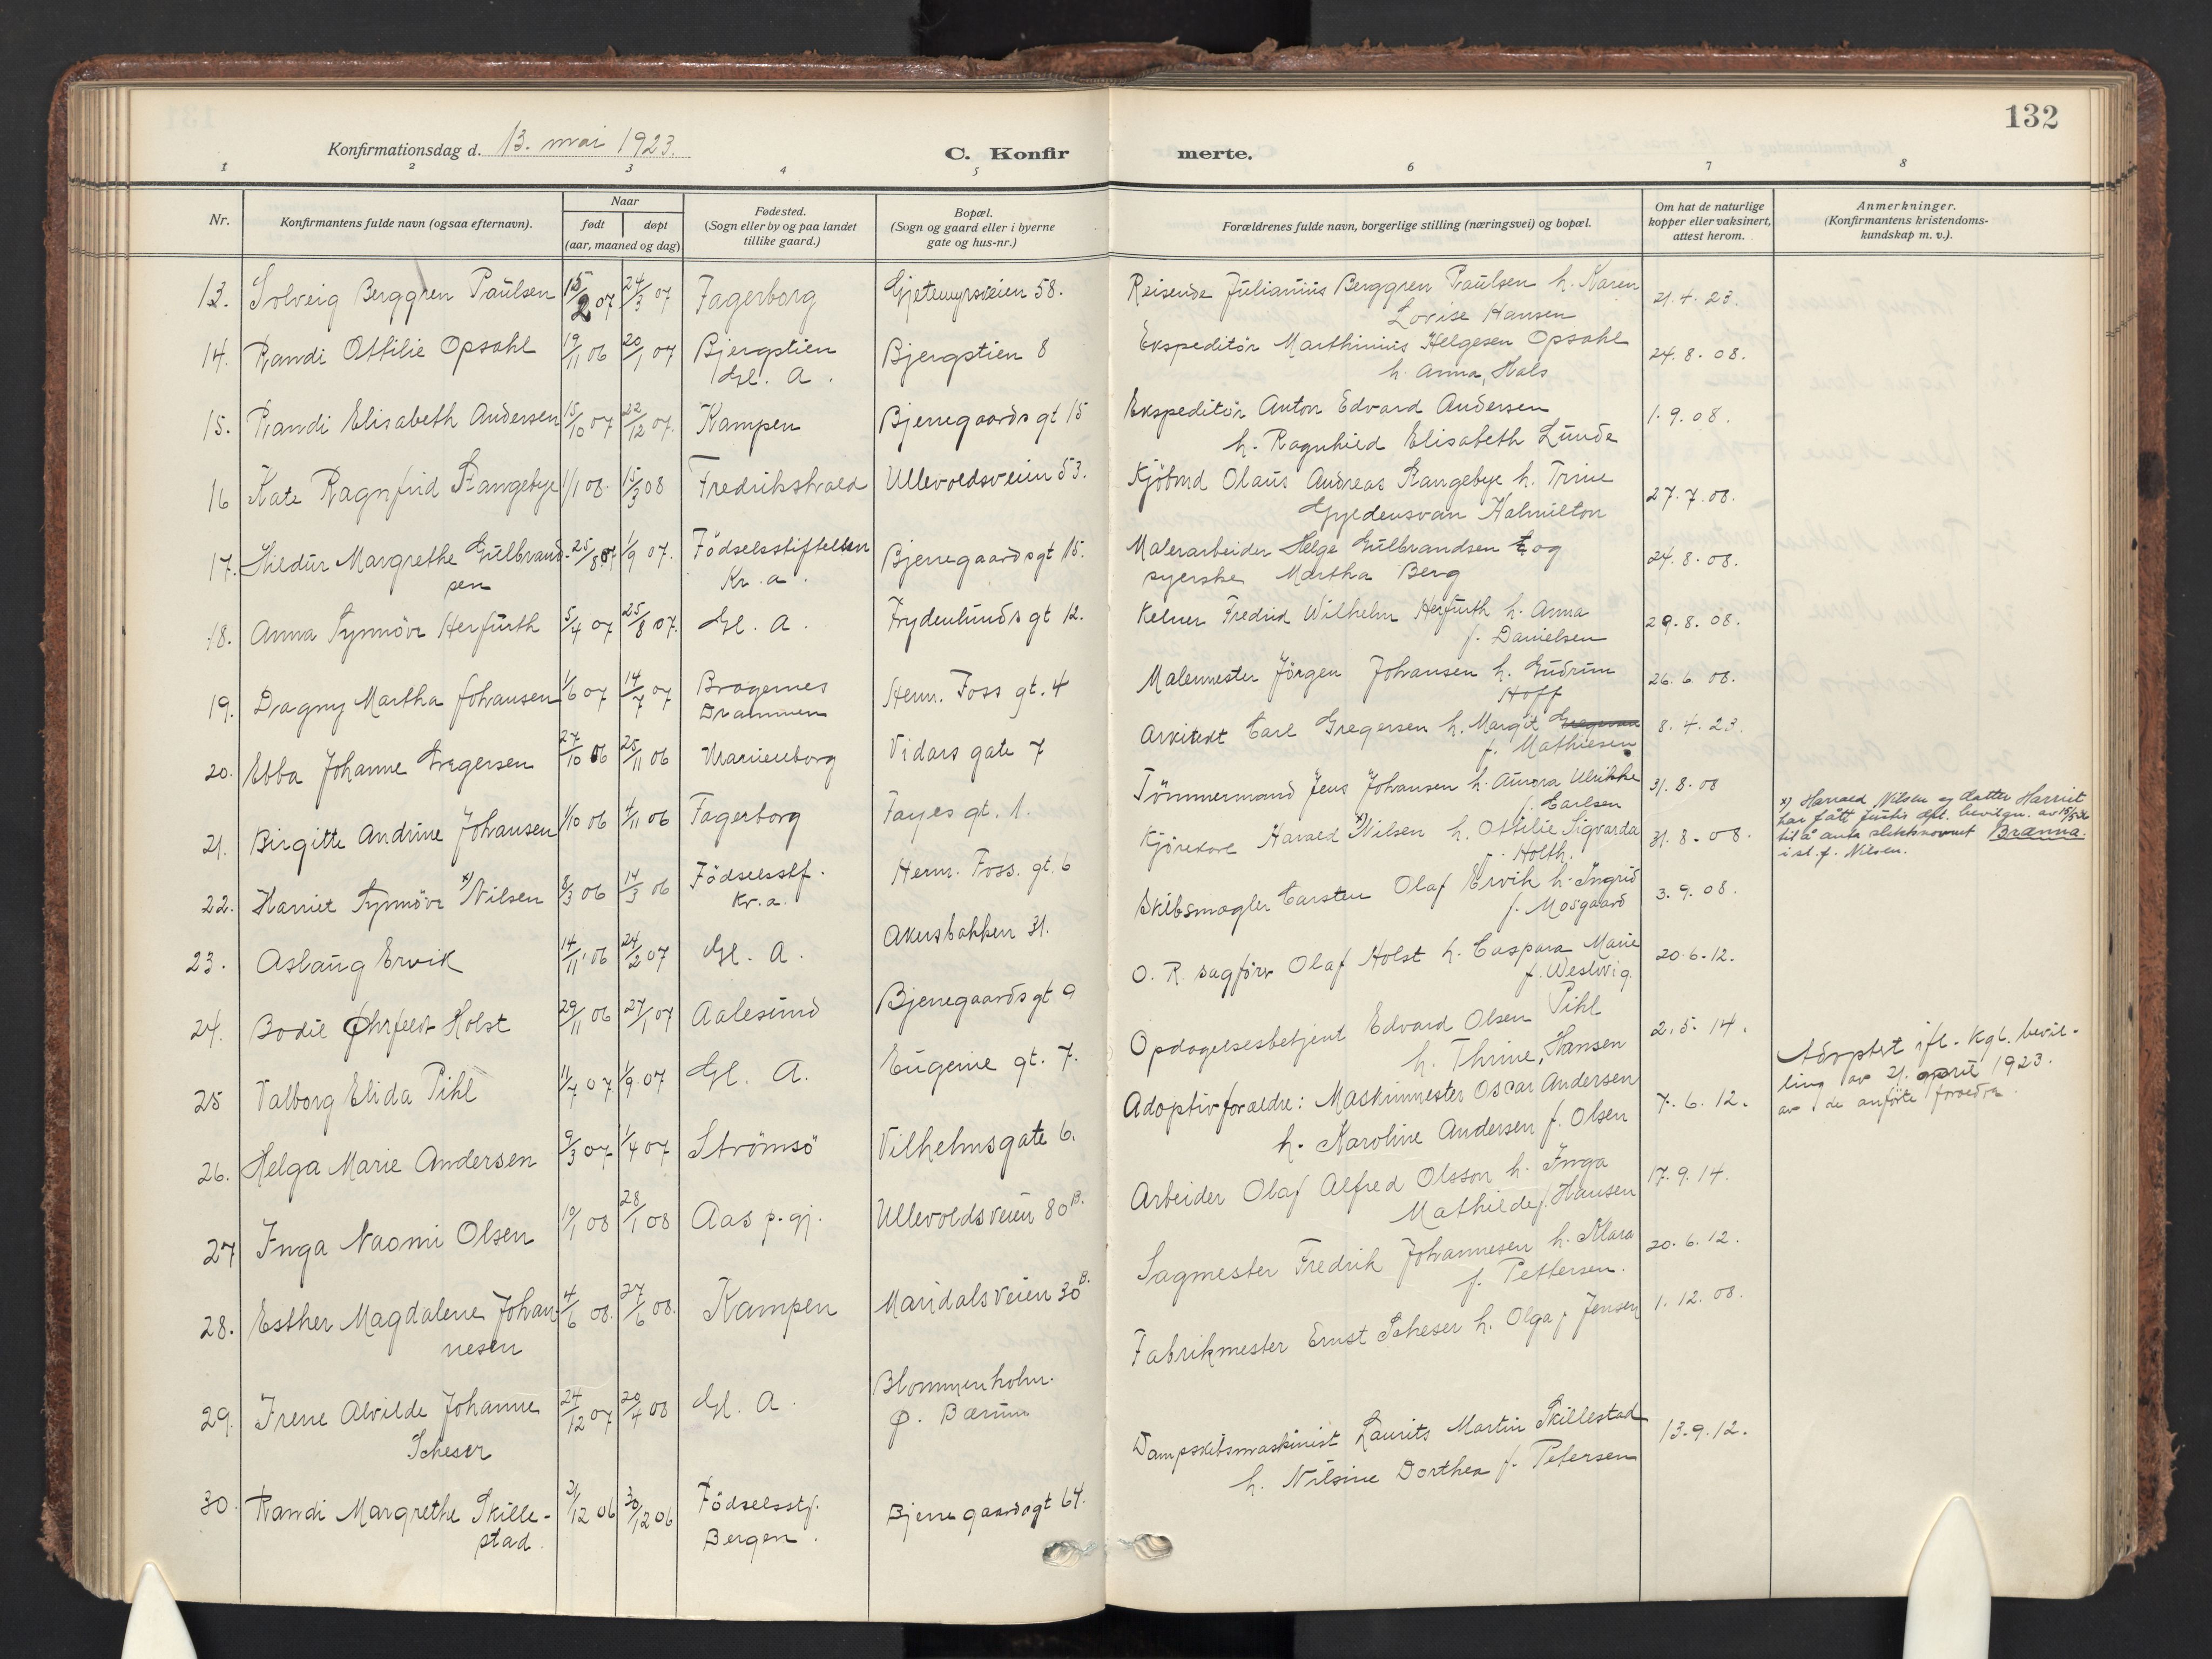 132
Konfirmationsdag d. 13. mai 1923.
C. Konfir merte.
1 2 3 4 5 6 7 8
Nr.
Konfirmantens fulde navn (ogsaa efternavn).
Naar
født døpt
(aar, maaned og dag)
Fødested.
(Sogn eller by og paa landet
tillike gaard.)
Bopæl.
(Sogn og gaard eller i byerne
gate og hus-nr.)
Forældrenes fulde navn, borgerlige stilling (næringsvei) og bopæl.
Om hat de naturlige
kopper eller vaksinert,
attest herom.
Anmerkninger.
(Konfirmantens kristendoms-
kundskap m. v.).
13. Solveig Berggren Paulsen 15/2 07 24/3 07 Fagerborg Gjetemyrsveien 58. Reisende Julianius Berggren Paulsen h. Karen 21.4.23.
Lovise Hansen
14. Randi Ottilie Opsahl 19/11 06 20/1 07 Bjergstien Bjergstien 8 Ekspeditör Marthinius Helgesen Opsahl 24.8.08.
Gl. A. h. Anna, Hals
15. Randi Elisabeth Andersen 15/10 07 22/12 07. Kampen Bjerregaards gt 15 Ekspeditör Anton Edvard Andersen 1.9.08.
h. Ragnhild Elisabeth Lunde
16 Kate Ragnfrid Stangebye 1/1 08. 15/3 08 Fredrikshald Ullevoldsveien 53. Kjöbmd Olaus Andreas Stangebye h. Trine 27.7.08.
Gyldensvan Halmilton
17. Hildur Margrethe Gulbrand- 25/8 07 1/9 07. Födselsstiftelsen Bjerregaardsgt 15. Malerarbeider Helge Gulbrandsen og 24.8.08.
sen Kr.a. syerske Martha Berg
18. Anna Synnöve Herfurth 5/4 07 25/8 07. Gl. A. Frydenlunds gt 12. Kelner Fredrid Wilhelm Herfurth h. Anna 29.8.08.
f. Danielsen
19. Dagny Martha Johansen 1/6 07 14/7 07 Bragernes Herm. Foss gt. 4 Malermester Jörgen Johansen h. Gudrun 26.6.08.
Drammen Hoff
20. Ebba Johanne Gregersen 27/10 06 25/11 06 Marienborg Vidars gate 7 Arkitekt Carl Gregersen h. Margit 8.4.23.
f. Mathiesen
21. Birgitte Andrine Johansen 1/10 06 4/11 06 Fagerborg Fayes gt. 1. Tömmermand Jens Johansen h. Aurora Ulrikke 31.8.08
f. Carlsen
22. Harriet Synnöve x) Nilsen 8/3 06 14/3 06 Födselsstf. Herm. Foss. gt. 6 Kjörekarl Harald x) Nilsen h. Ottilie Sigvarda 31.8-08.
Kr.a. f. Holth.
x) Harald Nilsen og datter Harriet
har fått Justis dpt. bevilgn. av
til å anta slektsnavnet Brænna
i st. f. Nilsen.
23. Aslaug Ervik 14/11 06 24/2 07 Gl. A. Akersbakken 31. Skibsmægler Carsten Olaf Ervik h. Ingrid 3.9.08.
f. Mosgaard
24. Bodil Øhrfeldt Holst 29/11 06 27/1 07 Aalesund Bjerregaardsgt 9 O. R. sagförer Olaf Holst h. Caspara Marie 20.6.12.
f. Weslvig.
25 Valborg Elida Pihl 11/7 07 1/9 07 Gl. A. Eugenie gt. 7. Opdagelsesbetjent Edvard Olsen Pihl 2.5.14.
h. Thrine, Hansen
26. Helga Marie Andersen 9/3 07 1/4 07 Strömsö Vilhelmsgate 6. Adoptivforældre: Maskinmester Oscar Andersen 7.6.12.
h. Karoline Andersen f. Olsen
Adoptert ifl. Kgl. bevil-
ling av 21. april 1923.
av de anförte forældre.
27 Inga Naomi Olsen 10/1 08 28/1 08 Aas p.gj. Ullevoldsveien 80 B. Arbeider Olaf Alfred Olsson h. Inga 17.9.14.
Mathilde f. Hansen
28. Esther Magdalene Johan- 4/6 08. 27/6 08. Kampen Maridalsveien 30 B. Sagmester Fredrik Johannesen h. Klara 20.6.12.
nesen f. Pettersen.
29. Irene Alvilde Johanne 24/12 07 20/4 08 Gl. A. Blommenholm. Fabrikmester Ernst Scheser h. Olga f. Jensen 1.12.08.
Scheser Ø. Bærum
30. Randi Margrethe Skille- 2/12 06 30/12 06 Födselsstf. Bjerregaardsgt 64. Dampskibsmaskinist Laurits Martin Skillestad 13.9.12.
stad. Bergen. h. Nilsine Dorthea f. Petersen